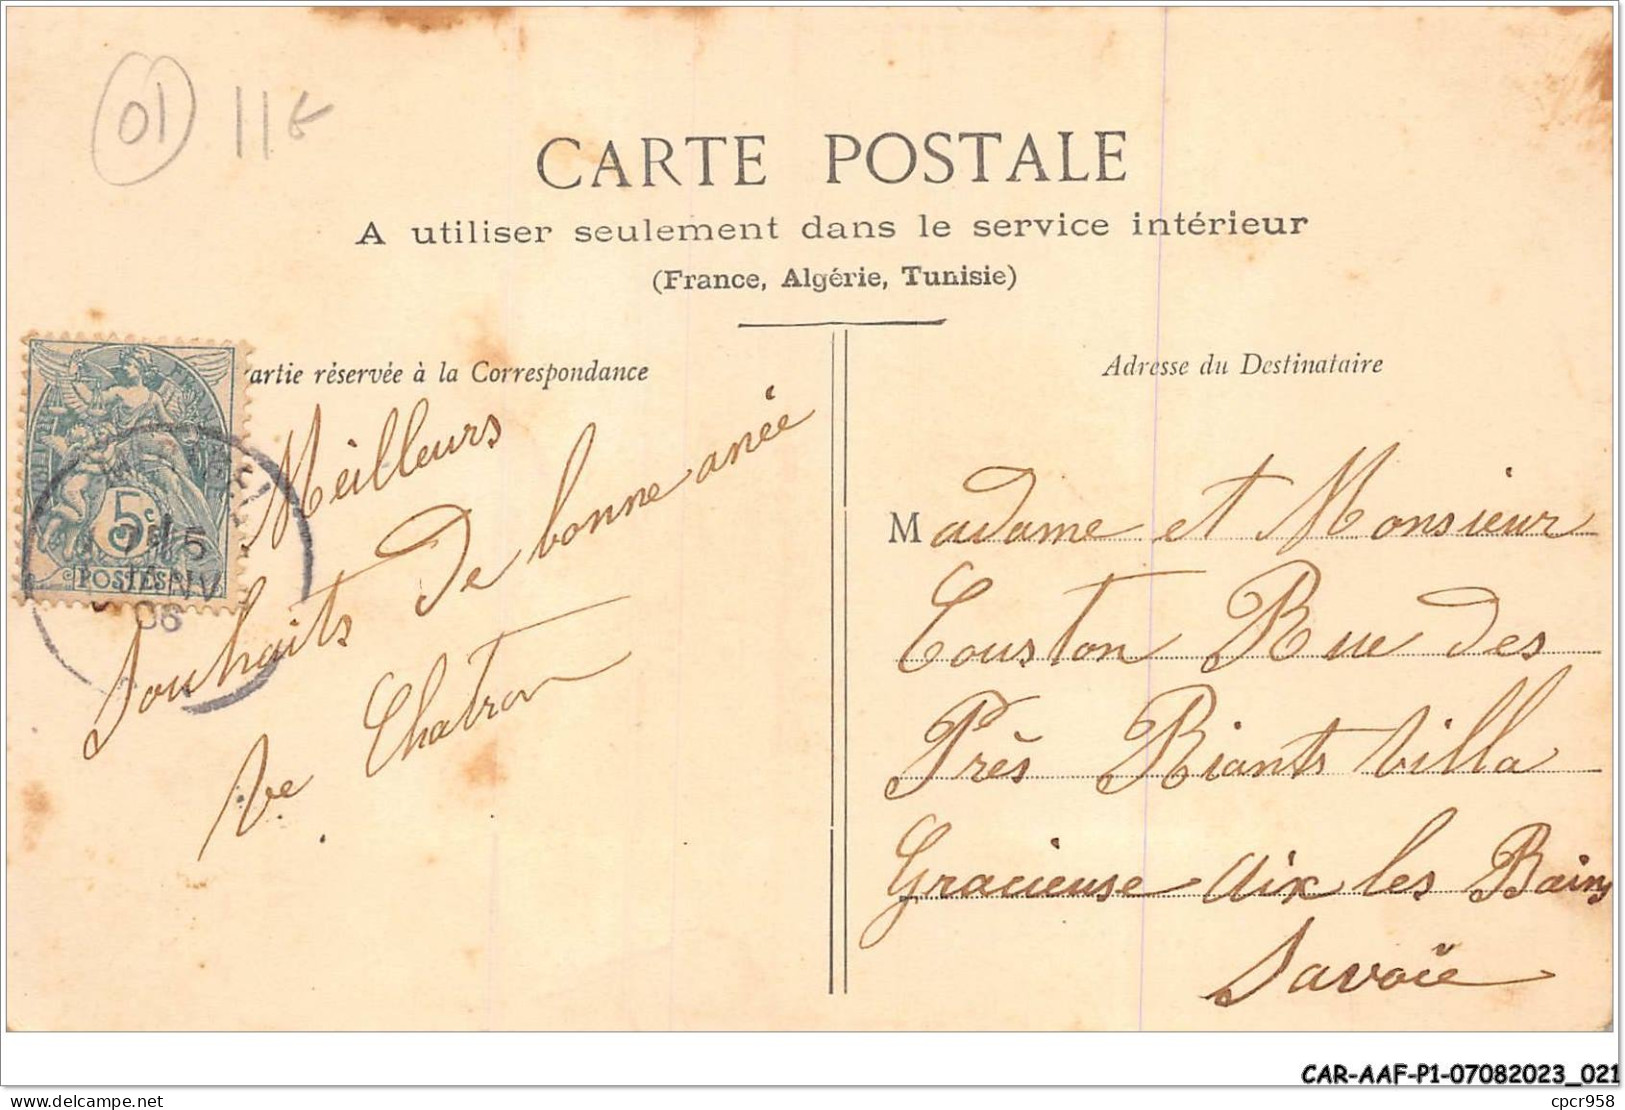 01 11€
CARTE POSTALE
A utiliser seulement dans le service intérieur
(France, Algérie, Tunisie)
artie réservée à la Correspondance
Adresse du Destinataire
5c
POSTES
15
06
Meilleurs
Souhaits de bonne anée
Ve Chatron
Madame et Monsieur
Couston Rue des
Près Riants Villa
Gracieuse Aix les Bains
Savoie
CAR-AAF-P1-07082023_021
delcampe.net
cpcr958